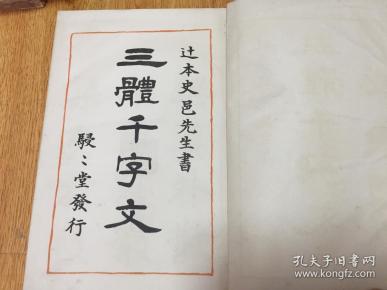 辻本史邑先生書
三體千字文
駸〻堂發行
孔夫子旧书网
www.kongfz.com